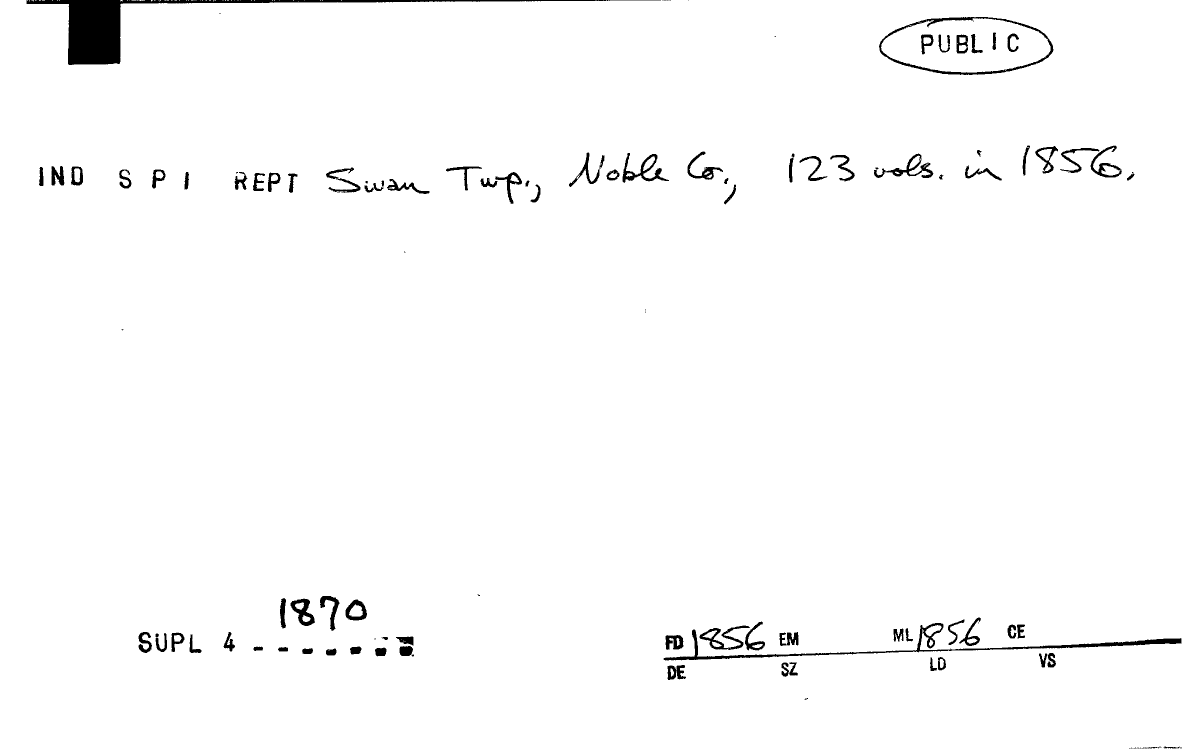 PUBLIC
IND S P I REPT Swan Twp., Noble Co., 123 vols. in 1856.
1870
SUPL 4 - - - - - - -
FD 1856 EM ML 1856 CE
DE SZ LD VS